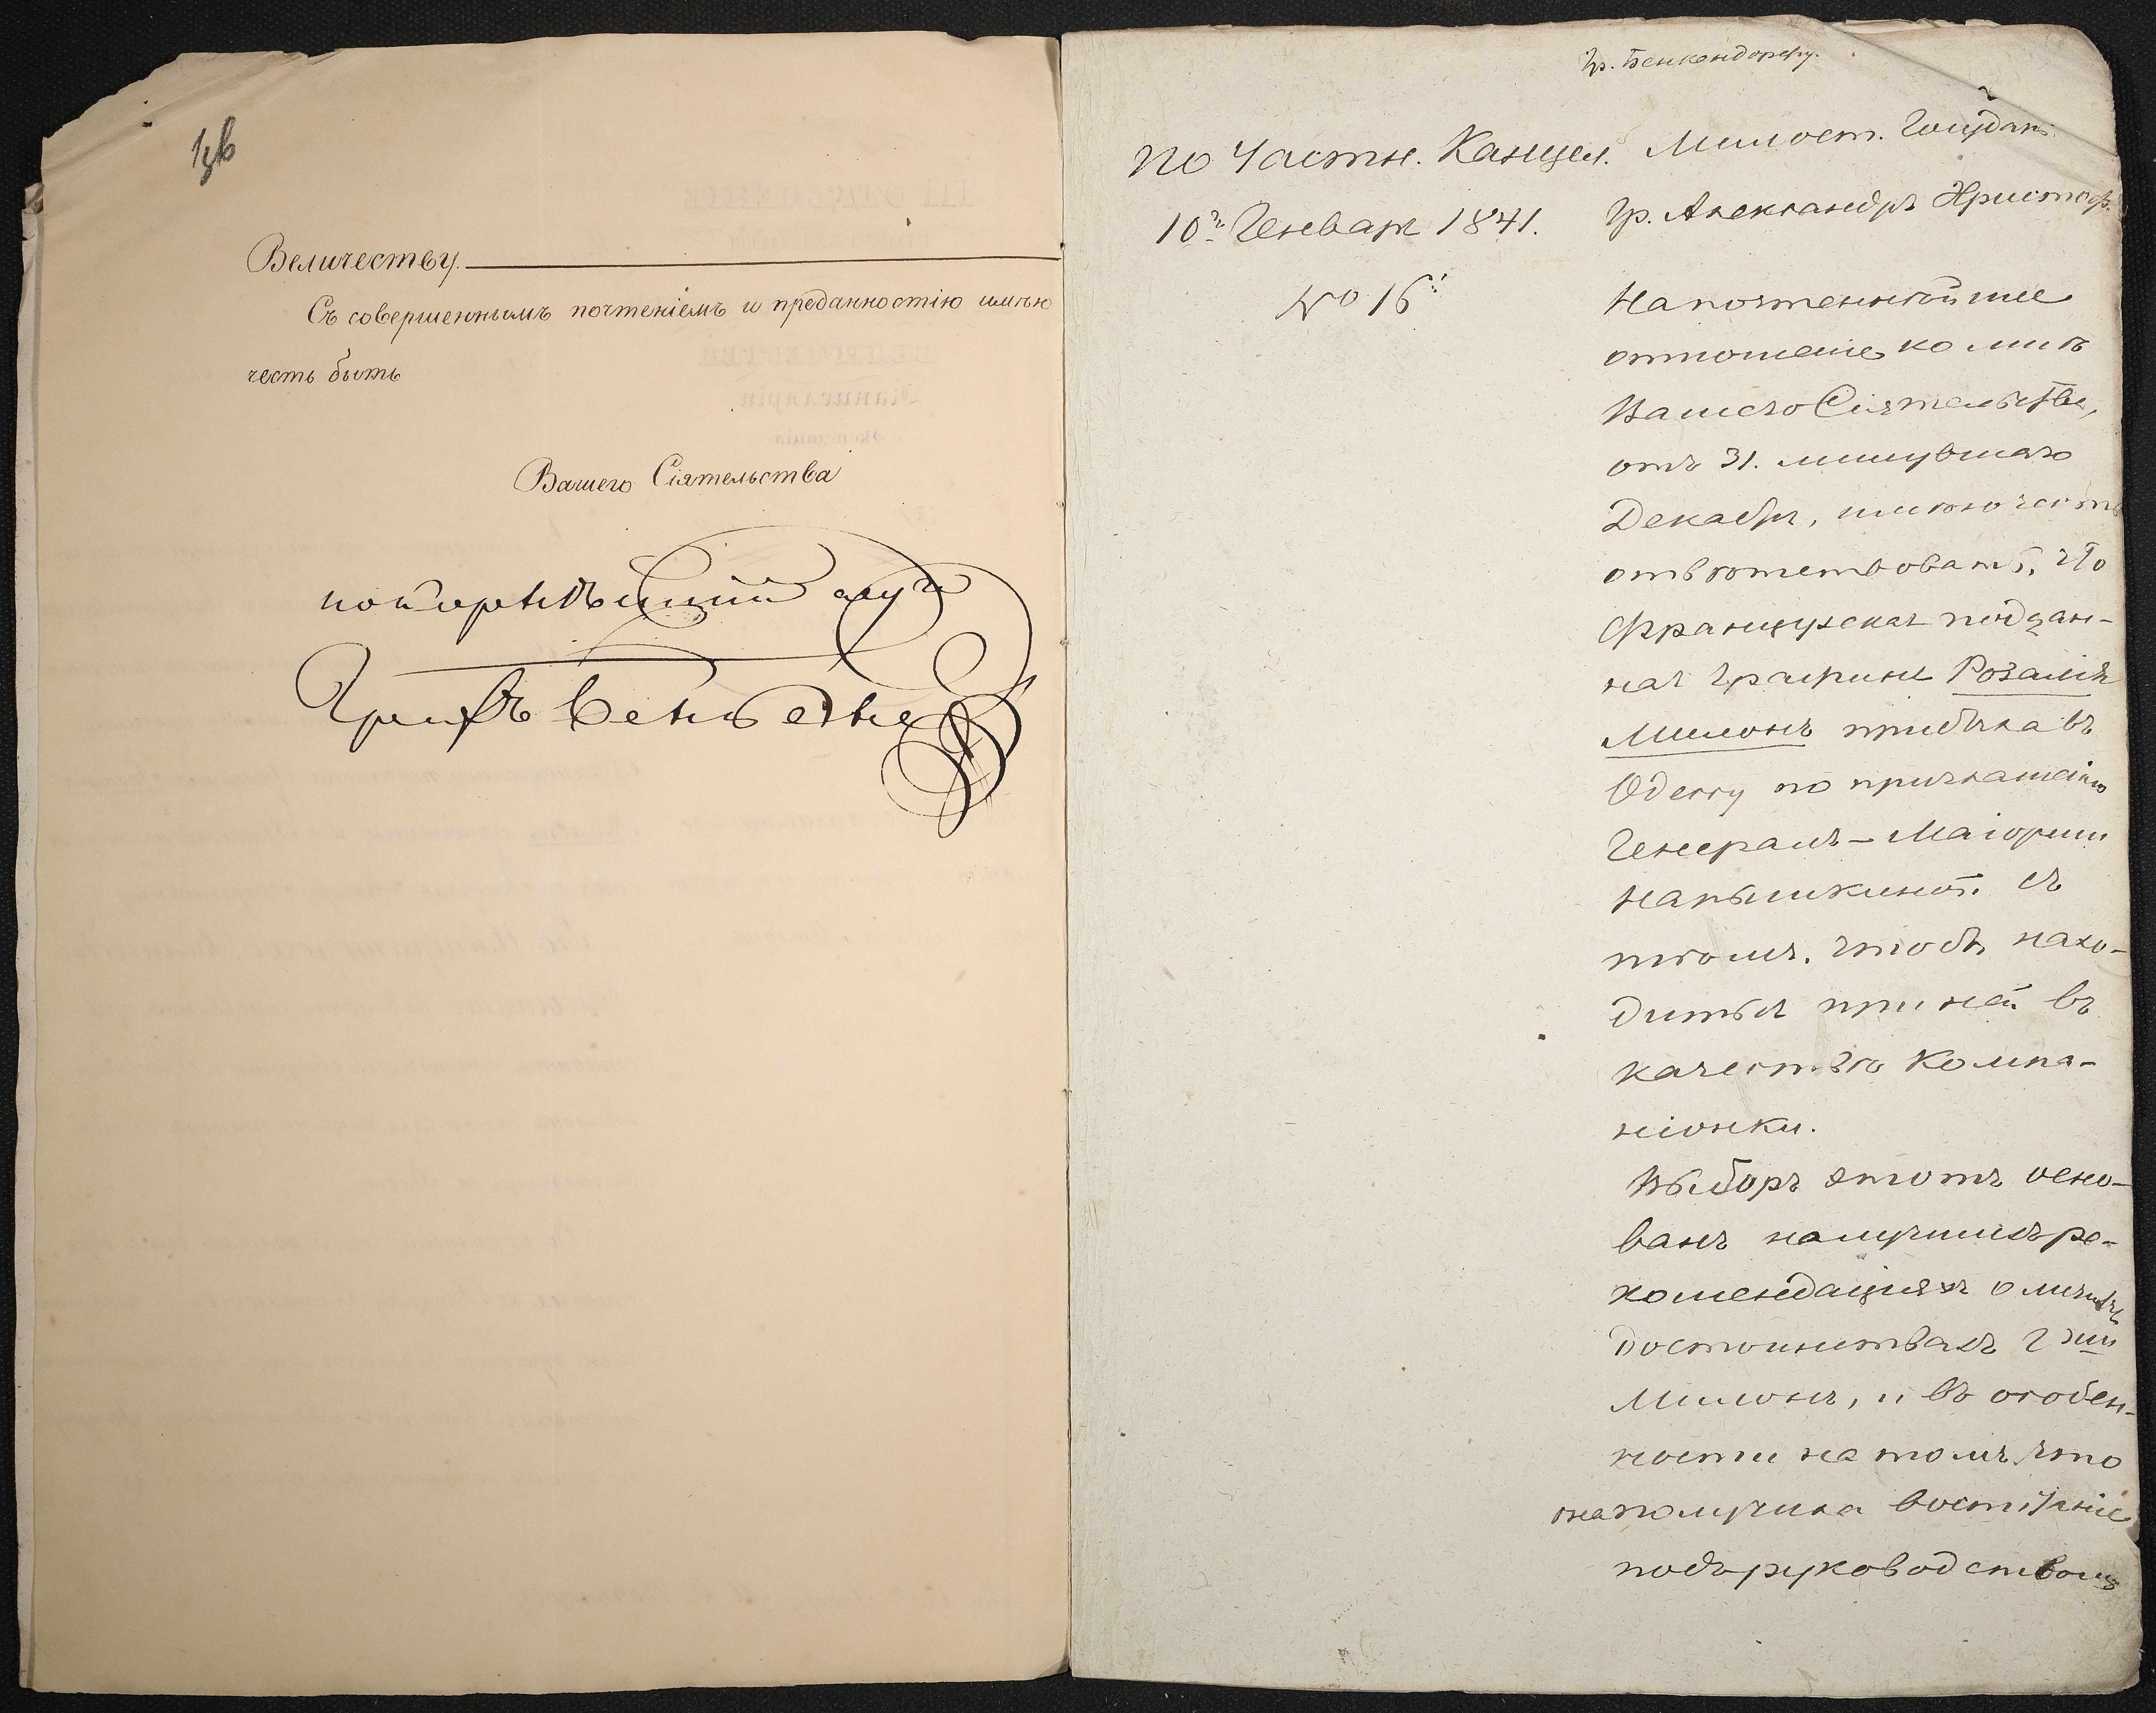 Величеству.
Съ совершеннымъ почтеніемъ и преданностію имѣю
честь быть
Вашего Сіятельства
покорнѣйшій слуга
Графъ Бенкендо
Гр. Бенкендорфу.
По Частн. Канцел.
10го Генваря 1841.
№ 16й
Милост. Государь
Гр. Александръ Христоф.
На почтеннѣйшее
отношеніе ко мнѣ
Вашего Сіятельства,
отъ 31. минувшаго
Декабря, имѣю честь
отвѣтствовать, что
Французская поддан-
ная Графиня Розалія
Милонъ прибыла въ
Одессу по приглашенію
Генералъ-Маіорши
Нарышкиной съ
тѣмъ, чтобъ нахо-
диться при ней въ
качествѣ Компа-
ніонки.
Выборъ этотъ осно-
ванъ на лучшихъ ре-
комендаціяхъ о личныхъ
достоинствахъ Гжи
Милонъ, и въ особен-
ности на томъ что
она получила воспитаніе
подъ руководствомъ